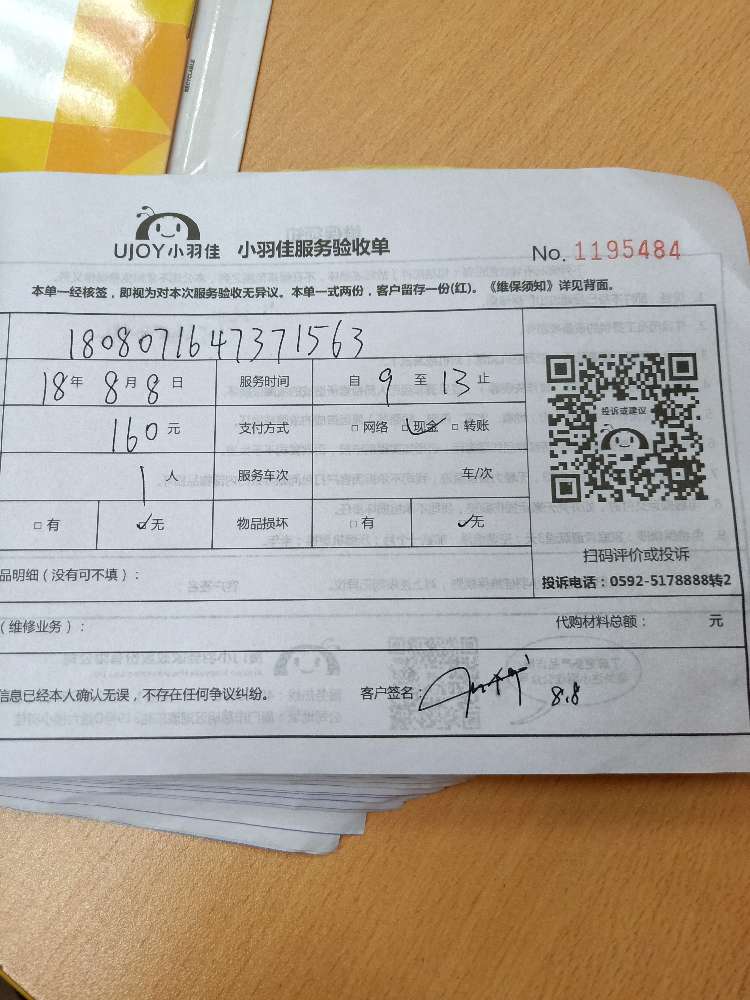 RECYCLABLE
UJOY小羽佳 小羽佳服务验收单 No. 1195484
本单一经核签，即视为对本次服务验收无异议。本单一式两份，客户留存一份(红)。《维保须知》详见背面。
1808071647371563
18年 8月8日 服务时间 自 9 至 13 止
160 元 支付方式 □网络 □现金 □转账
投诉或建议
1 人 服务车次 车/次
□有 □无 物品损坏 □有 □无
扫码评价或投诉
品明细（没有可不填）： 投诉电话：0592-5178888转2
（维修业务）： 代购材料总额： 元
信息已经本人确认无误，不存在任何争议纠纷。 客户签名： 8.8